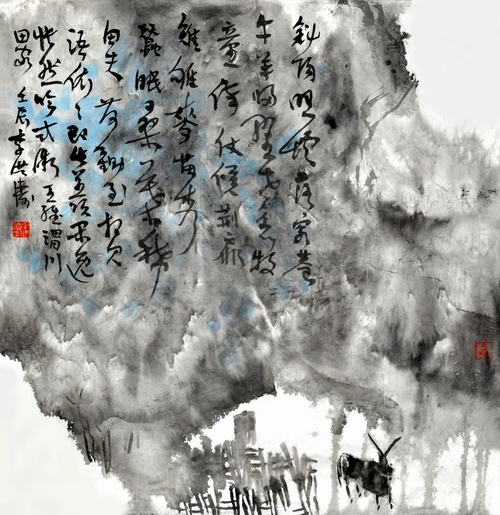 斜陽照墟落窮巷
牛羊歸野老念牧
童倚杖候荆扉
雉雊麥苗秀
蠶眠桑葉稀
田夫荷鋤至相見
語依々即此羡閑逸
悵然吟式微王維渭川
田家 壬辰